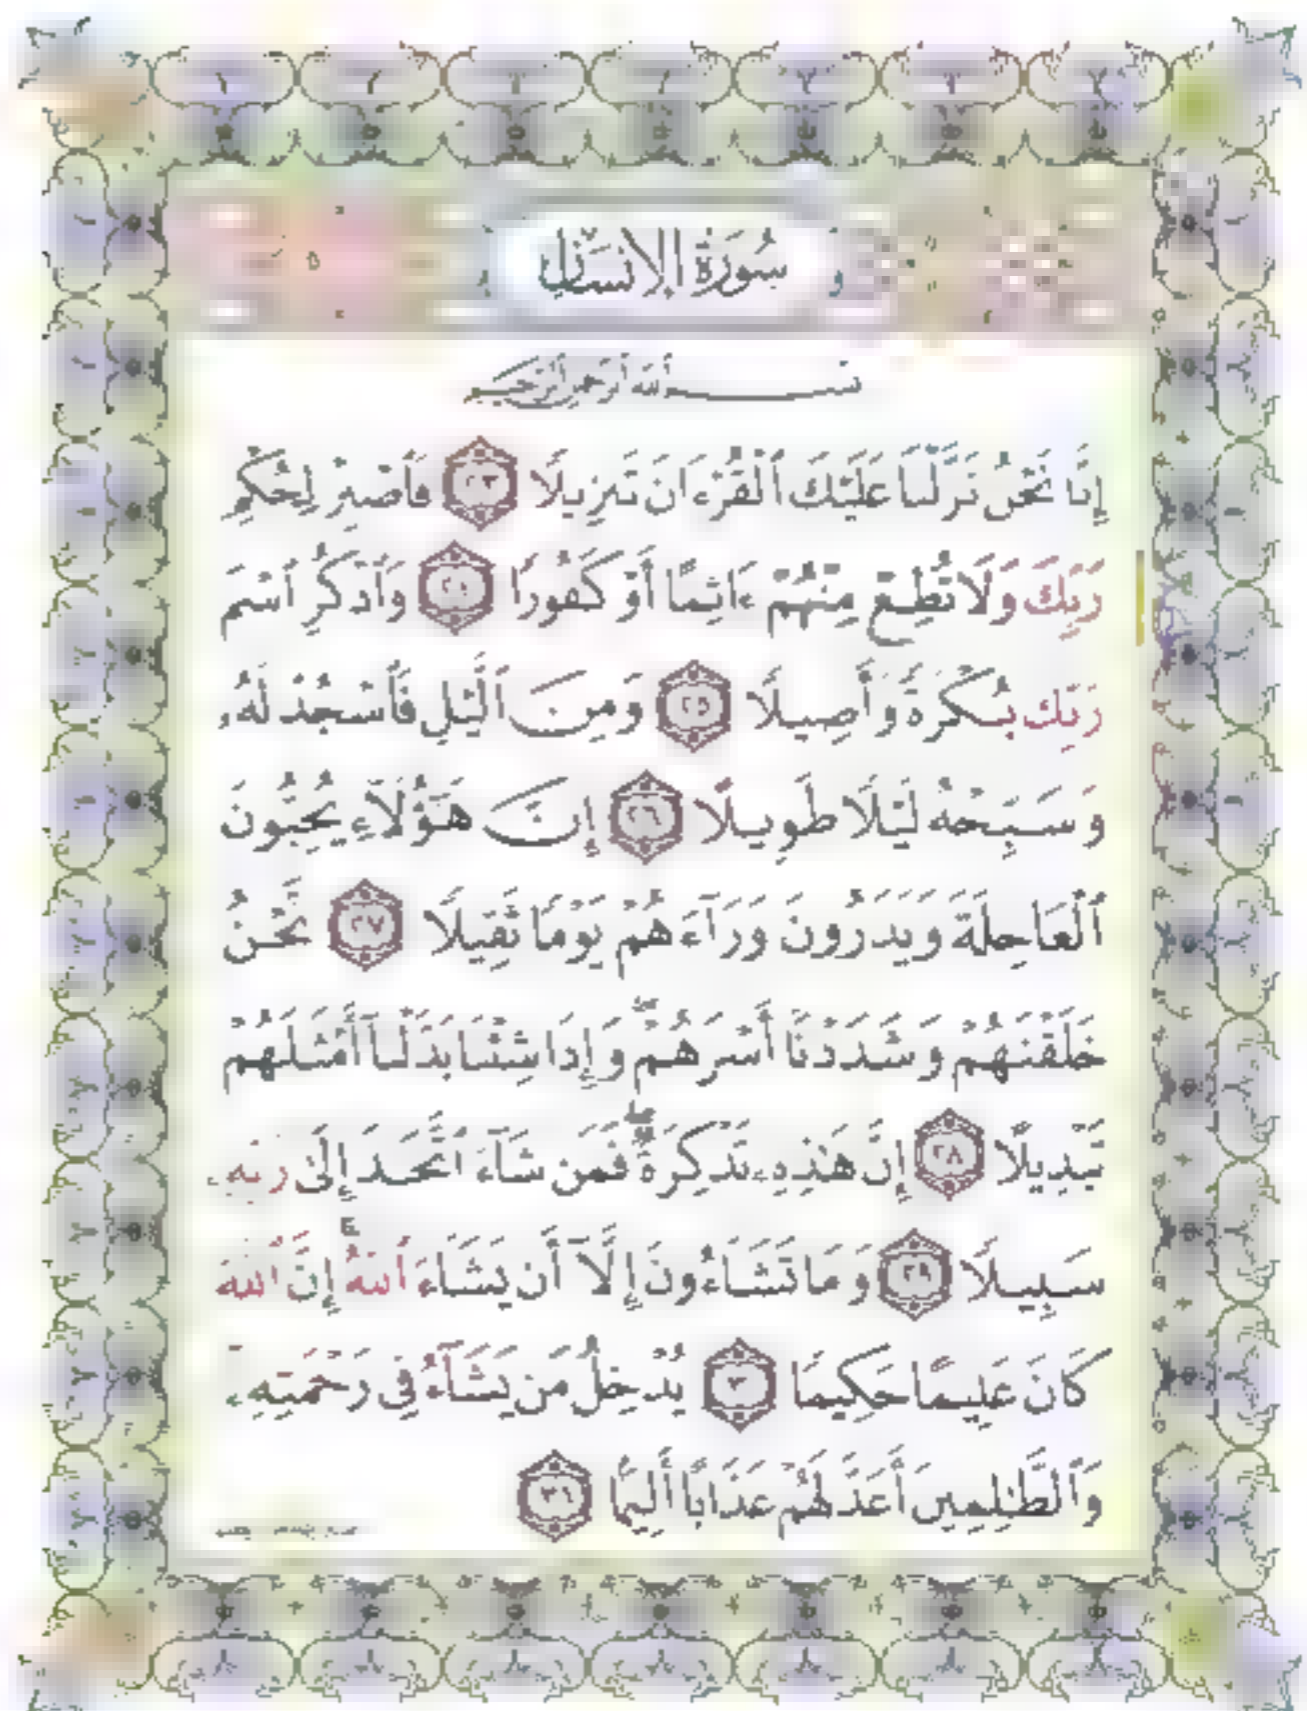 سُورَةُ الإِنسَانِ
بِسْمِ ٱللَّهِ ٱلرَّحْمَٰنِ ٱلرَّحِيمِ
إِنَّا نَحْنُ نَزَّلْنَا عَلَيْكَ ٱلْقُرْءَانَ تَنزِيلًا ٢٣ فَٱصْبِرْ لِحُكْمِ
رَبِّكَ وَلَا تُطِعْ مِنْهُمْ ءَاثِمًا أَوْ كَفُورًا ٢٤ وَٱذْكُرِ ٱسْمَ
رَبِّكَ بُكْرَةً وَأَصِيلًا ٢٥ وَمِنَ ٱلَّيْلِ فَٱسْجُدْ لَهُۥ
وَسَبِّحْهُ لَيْلًا طَوِيلًا ٢٦ إِنَّ هَٰٓؤُلَآءِ يُحِبُّونَ
ٱلْعَاجِلَةَ وَيَذَرُونَ وَرَآءَهُمْ يَوْمًا ثَقِيلًا ٢٧ نَّحْنُ
خَلَقْنَٰهُمْ وَشَدَدْنَآ أَسْرَهُمْ ۖ وَإِذَا شِئْنَا بَدَّلْنَآ أَمْثَٰلَهُمْ
تَبْدِيلًا ٢٨ إِنَّ هَٰذِهِۦ تَذْكِرَةٌ ۖ فَمَن شَآءَ ٱتَّخَذَ إِلَىٰ رَبِّهِۦ
سَبِيلًا ٢٩ وَمَا تَشَآءُونَ إِلَّآ أَن يَشَآءَ ٱللَّهُ ۚ إِنَّ ٱللَّهَ
كَانَ عَلِيمًا حَكِيمًا ٣٠ يُدْخِلُ مَن يَشَآءُ فِى رَحْمَتِهِۦ ۚ
وَٱلظَّٰلِمِينَ أَعَدَّ لَهُمْ عَذَابًا أَلِيمًۢا ٣١